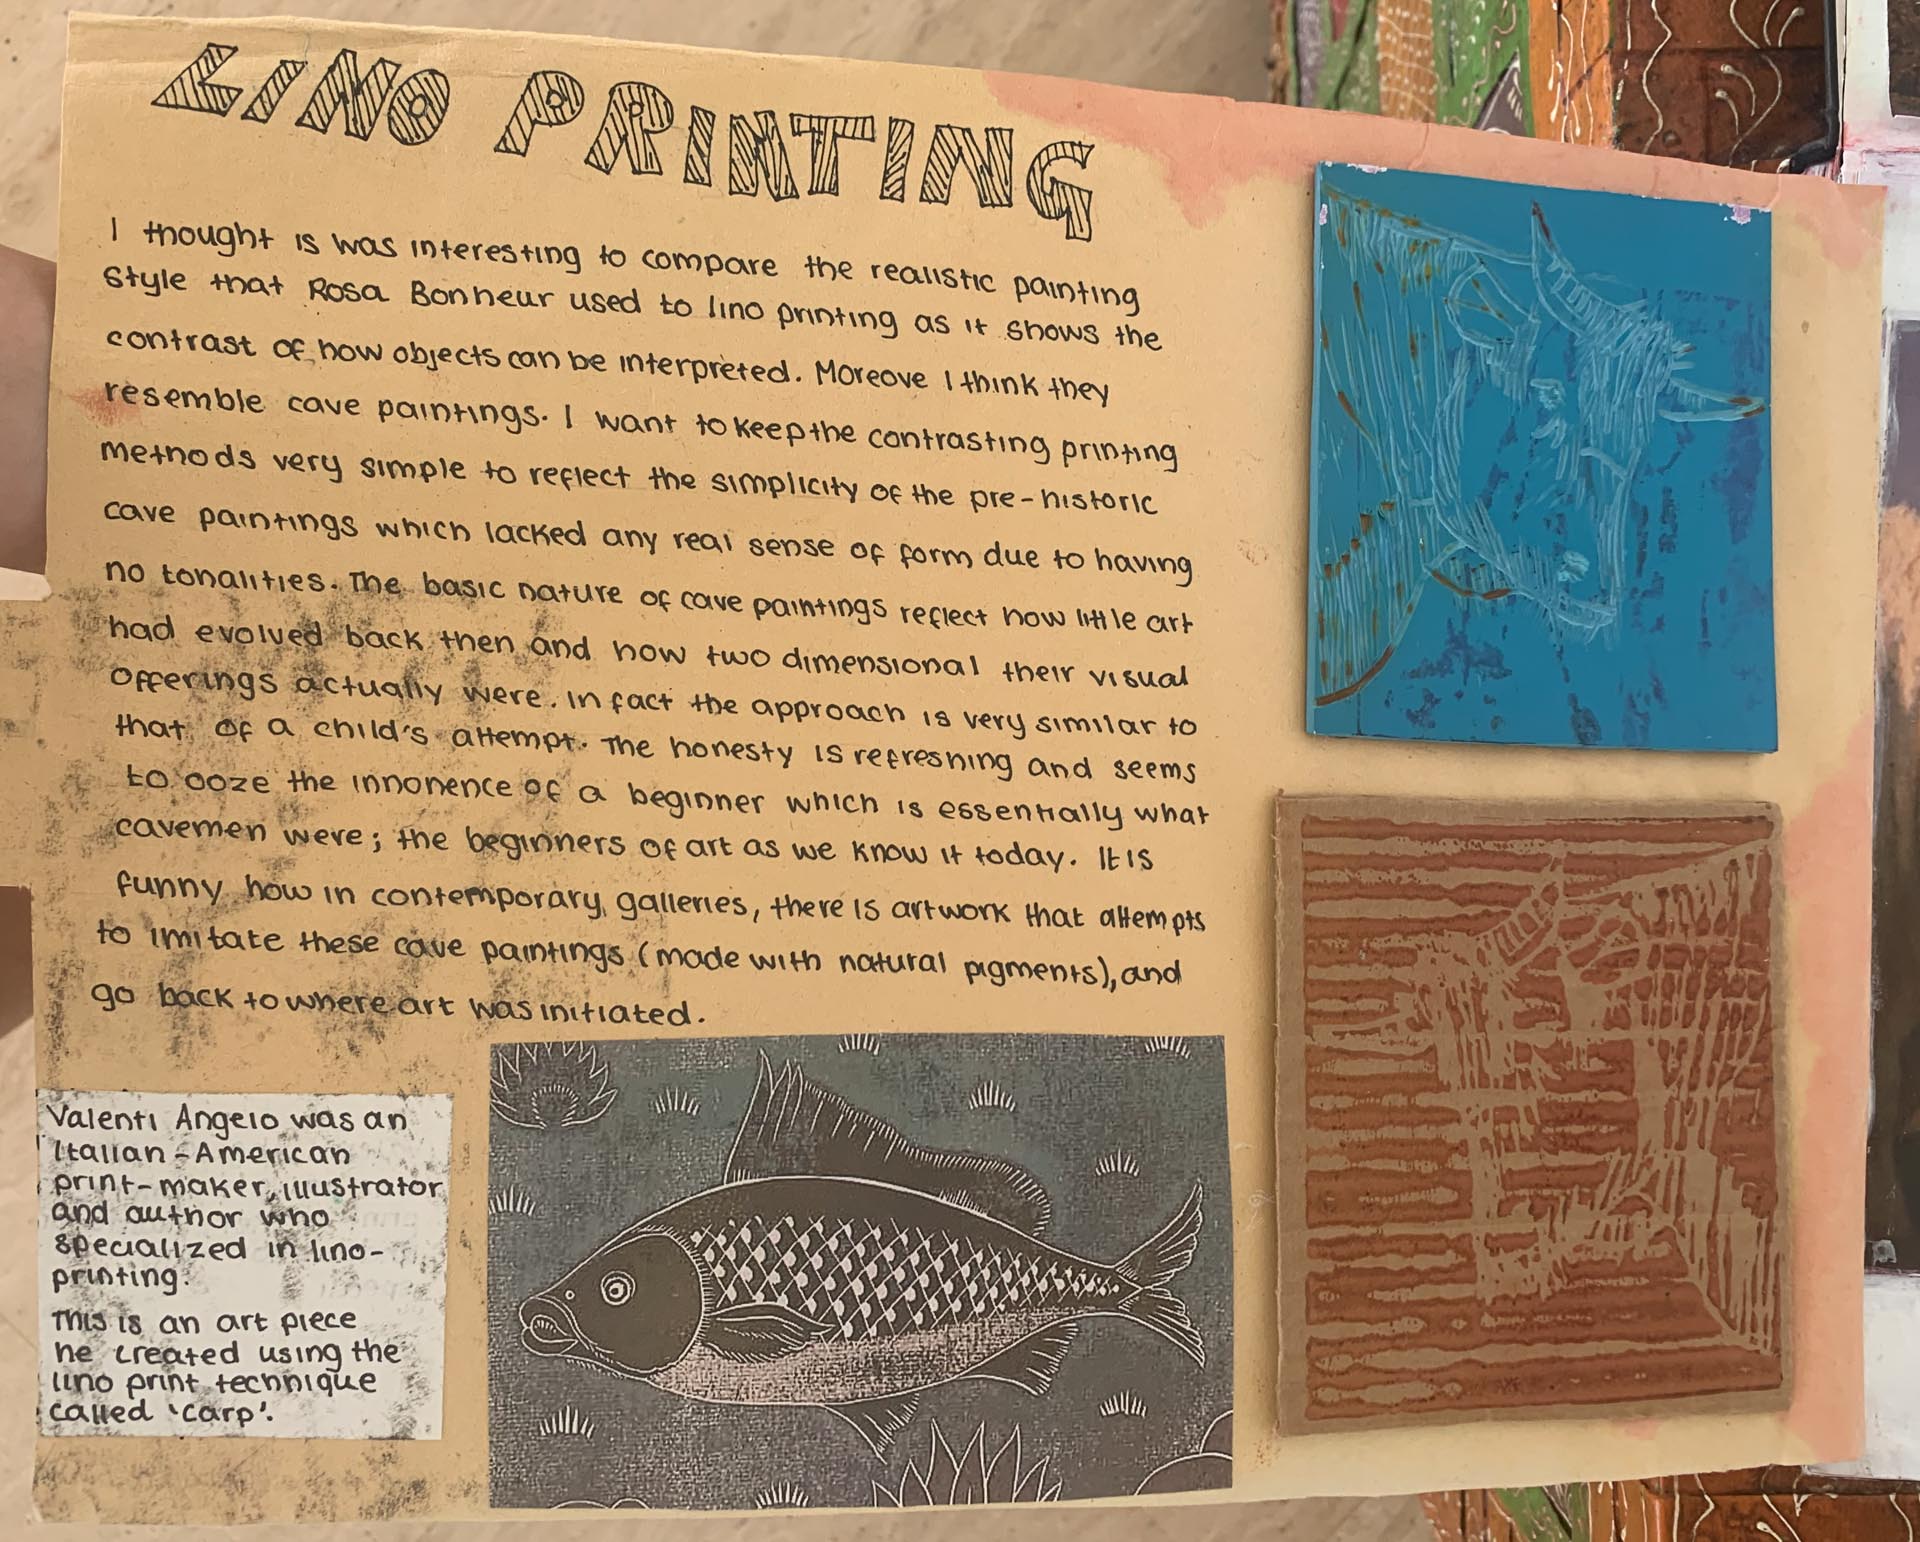 LINO PRINTING
I thought is was interesting to compare the realistic painting
style that Rosa Bonheur used to lino printing as it shows the
contrast of how objects can be interpreted. Moreove I think they
resemble cave paintings. I want to keep the contrasting printing
methods very simple to reflect the simplicity of the pre-historic
cave paintings which lacked any real sense of form due to having
no tonalities. The basic nature of cave paintings reflect how little art
had evolved back then and how two dimensional their visual
offerings actually were. In fact the approach is very similar to
that of a child's attempt. The honesty is refreshing and seems
to ooze the innonence of a beginner which is essentially what
cavemen were; the beginners of art as we know it today. It is
funny how in contemporary galleries, there is artwork that attempts
to imitate these cave paintings (made with natural pigments), and
go back to where art was initiated.
Valenti Angelo was an
Italian-American
print-maker, illustrator
and author who
specialized in lino-
printing.
This is an art piece
he created using the
lino print technique
called 'carp'.